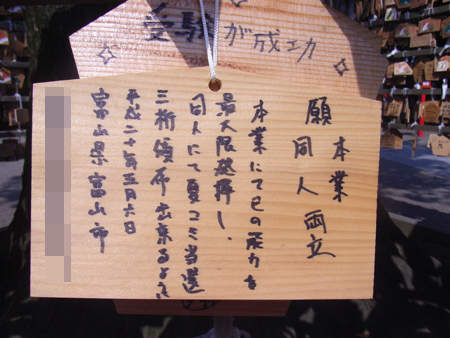 受験が成功
本業
願 同人両立
本業にて己の能力を
最大限発揮し、
同人にて夏コミ当選
三桁頒布出来るよう
平成二十年五月六日
富山県富山市